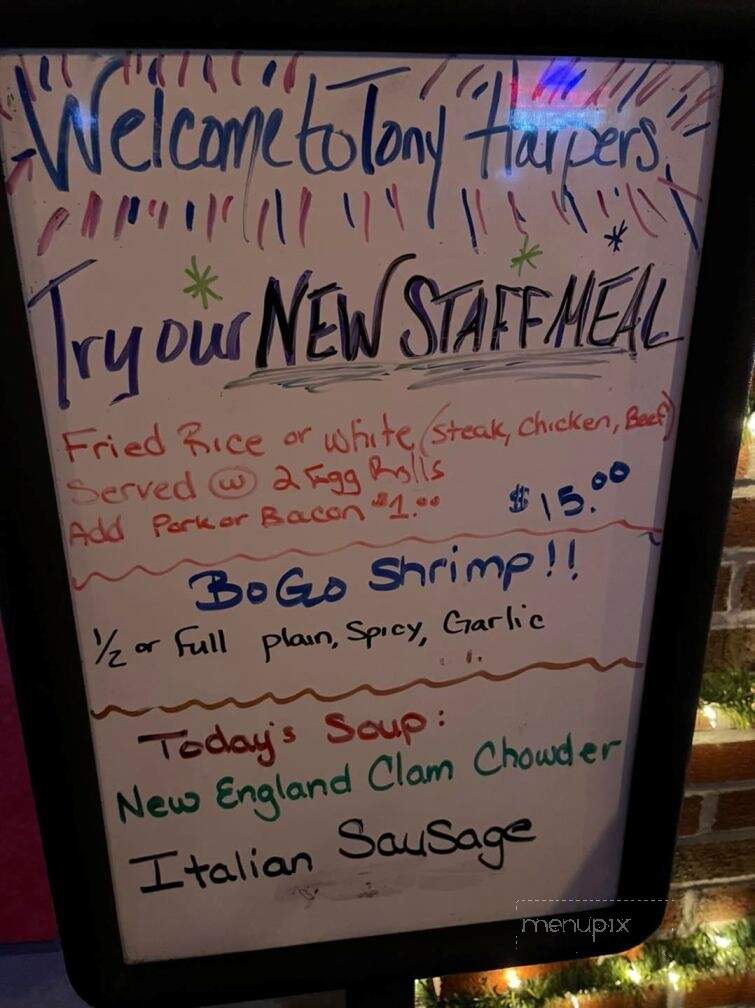 Welcome to Tony Harpers
Try our NEW STAFF MEAL
Fried Rice or white (Steak, Chicken, Beef)
Served w 2 Egg Rolls
Add Pork or Bacon $1.00 $15.00
BoGo Shrimp!!
1/2 or Full plain, Spicy, Garlic
Today's Soup:
New England Clam Chowder
Italian Sausage
menupix